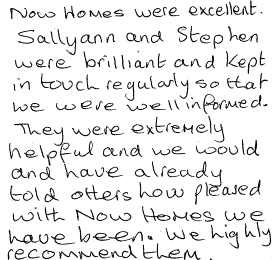 Now Homes were excellent.
Sallyann and Stephen
were brilliant and kept
in touch regularly so that
we were well informed.
They were extremely
helpful and we would
and have already
told others how pleased
with Now Homes we
have been. We highly
recommend them.